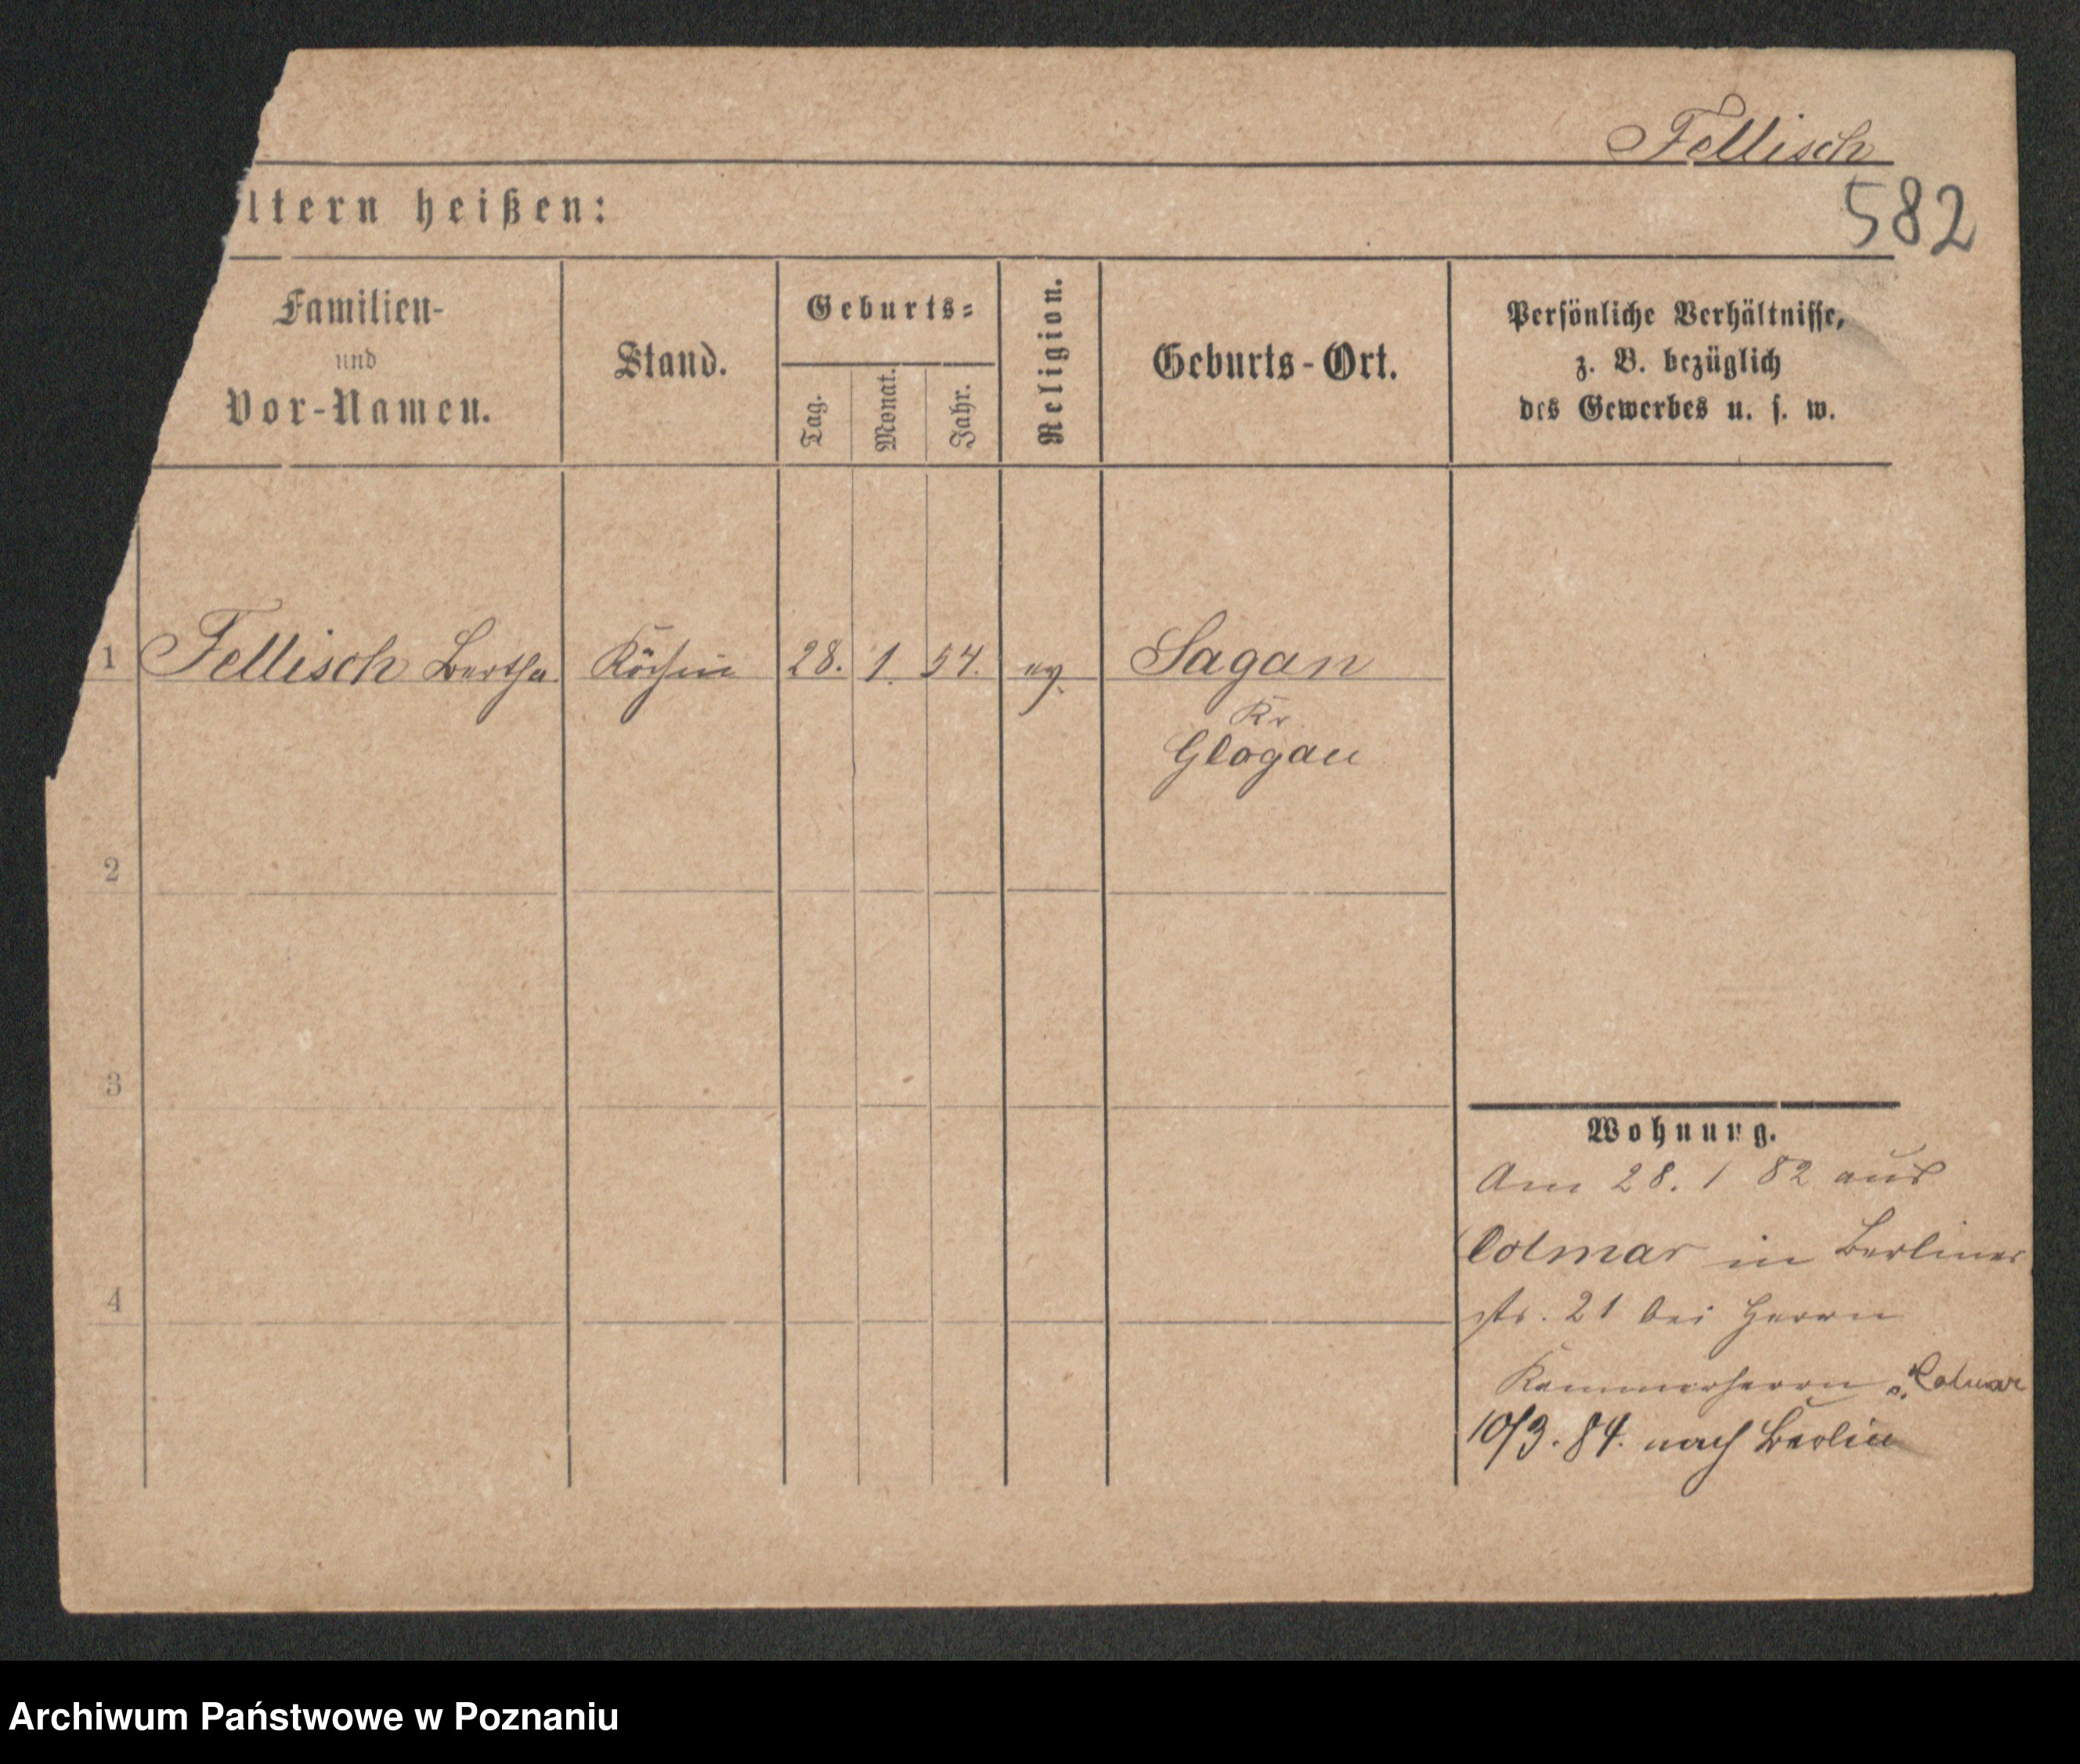 Fellisch
ltern heißen:
582
Familien-
und
Vor-Namen.
Stand.
Geburts-
Tag.
Monat.
Jahr.
Religion.
Geburts-Ort.
Persönliche Verhältnisse,
z. B. bezüglich
des Gewerbes u. s. w.
1 Fellisch Bertha Köchin 28. 1. 54. ev. Sagan
Kr
Glogau
2
3
4
Wohnung.
Am 28. 1 82 aus
Colmar in Berliner
str. 21 bei Herrn
Kammerherrn v. Colmar
10/3. 84. nach Berlin
Archiwum Państwowe w Poznaniu